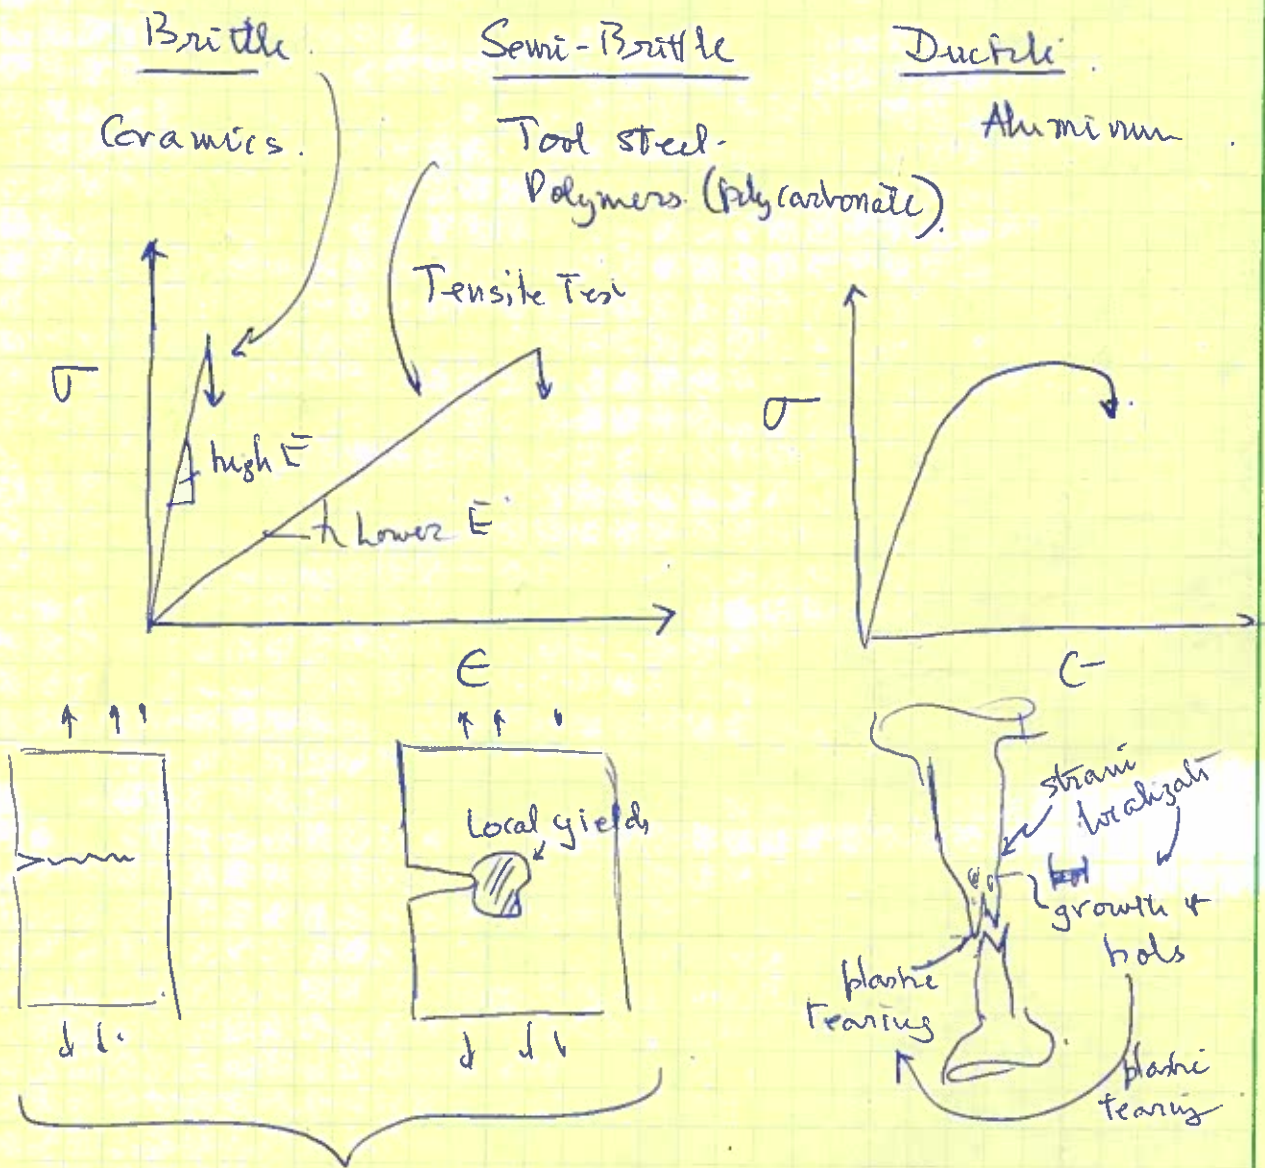 Brittle.
Semi-Brittle
Ductile.
Ceramics.
Tool steel.
Polymers (polycarbonate).
Aluminum
Tensile Test
σ
high E
Lower E
ϵ
σ
ϵ
Local yields
strain
localizati
growth of
hols
plastic
tearing
plastic
tearing